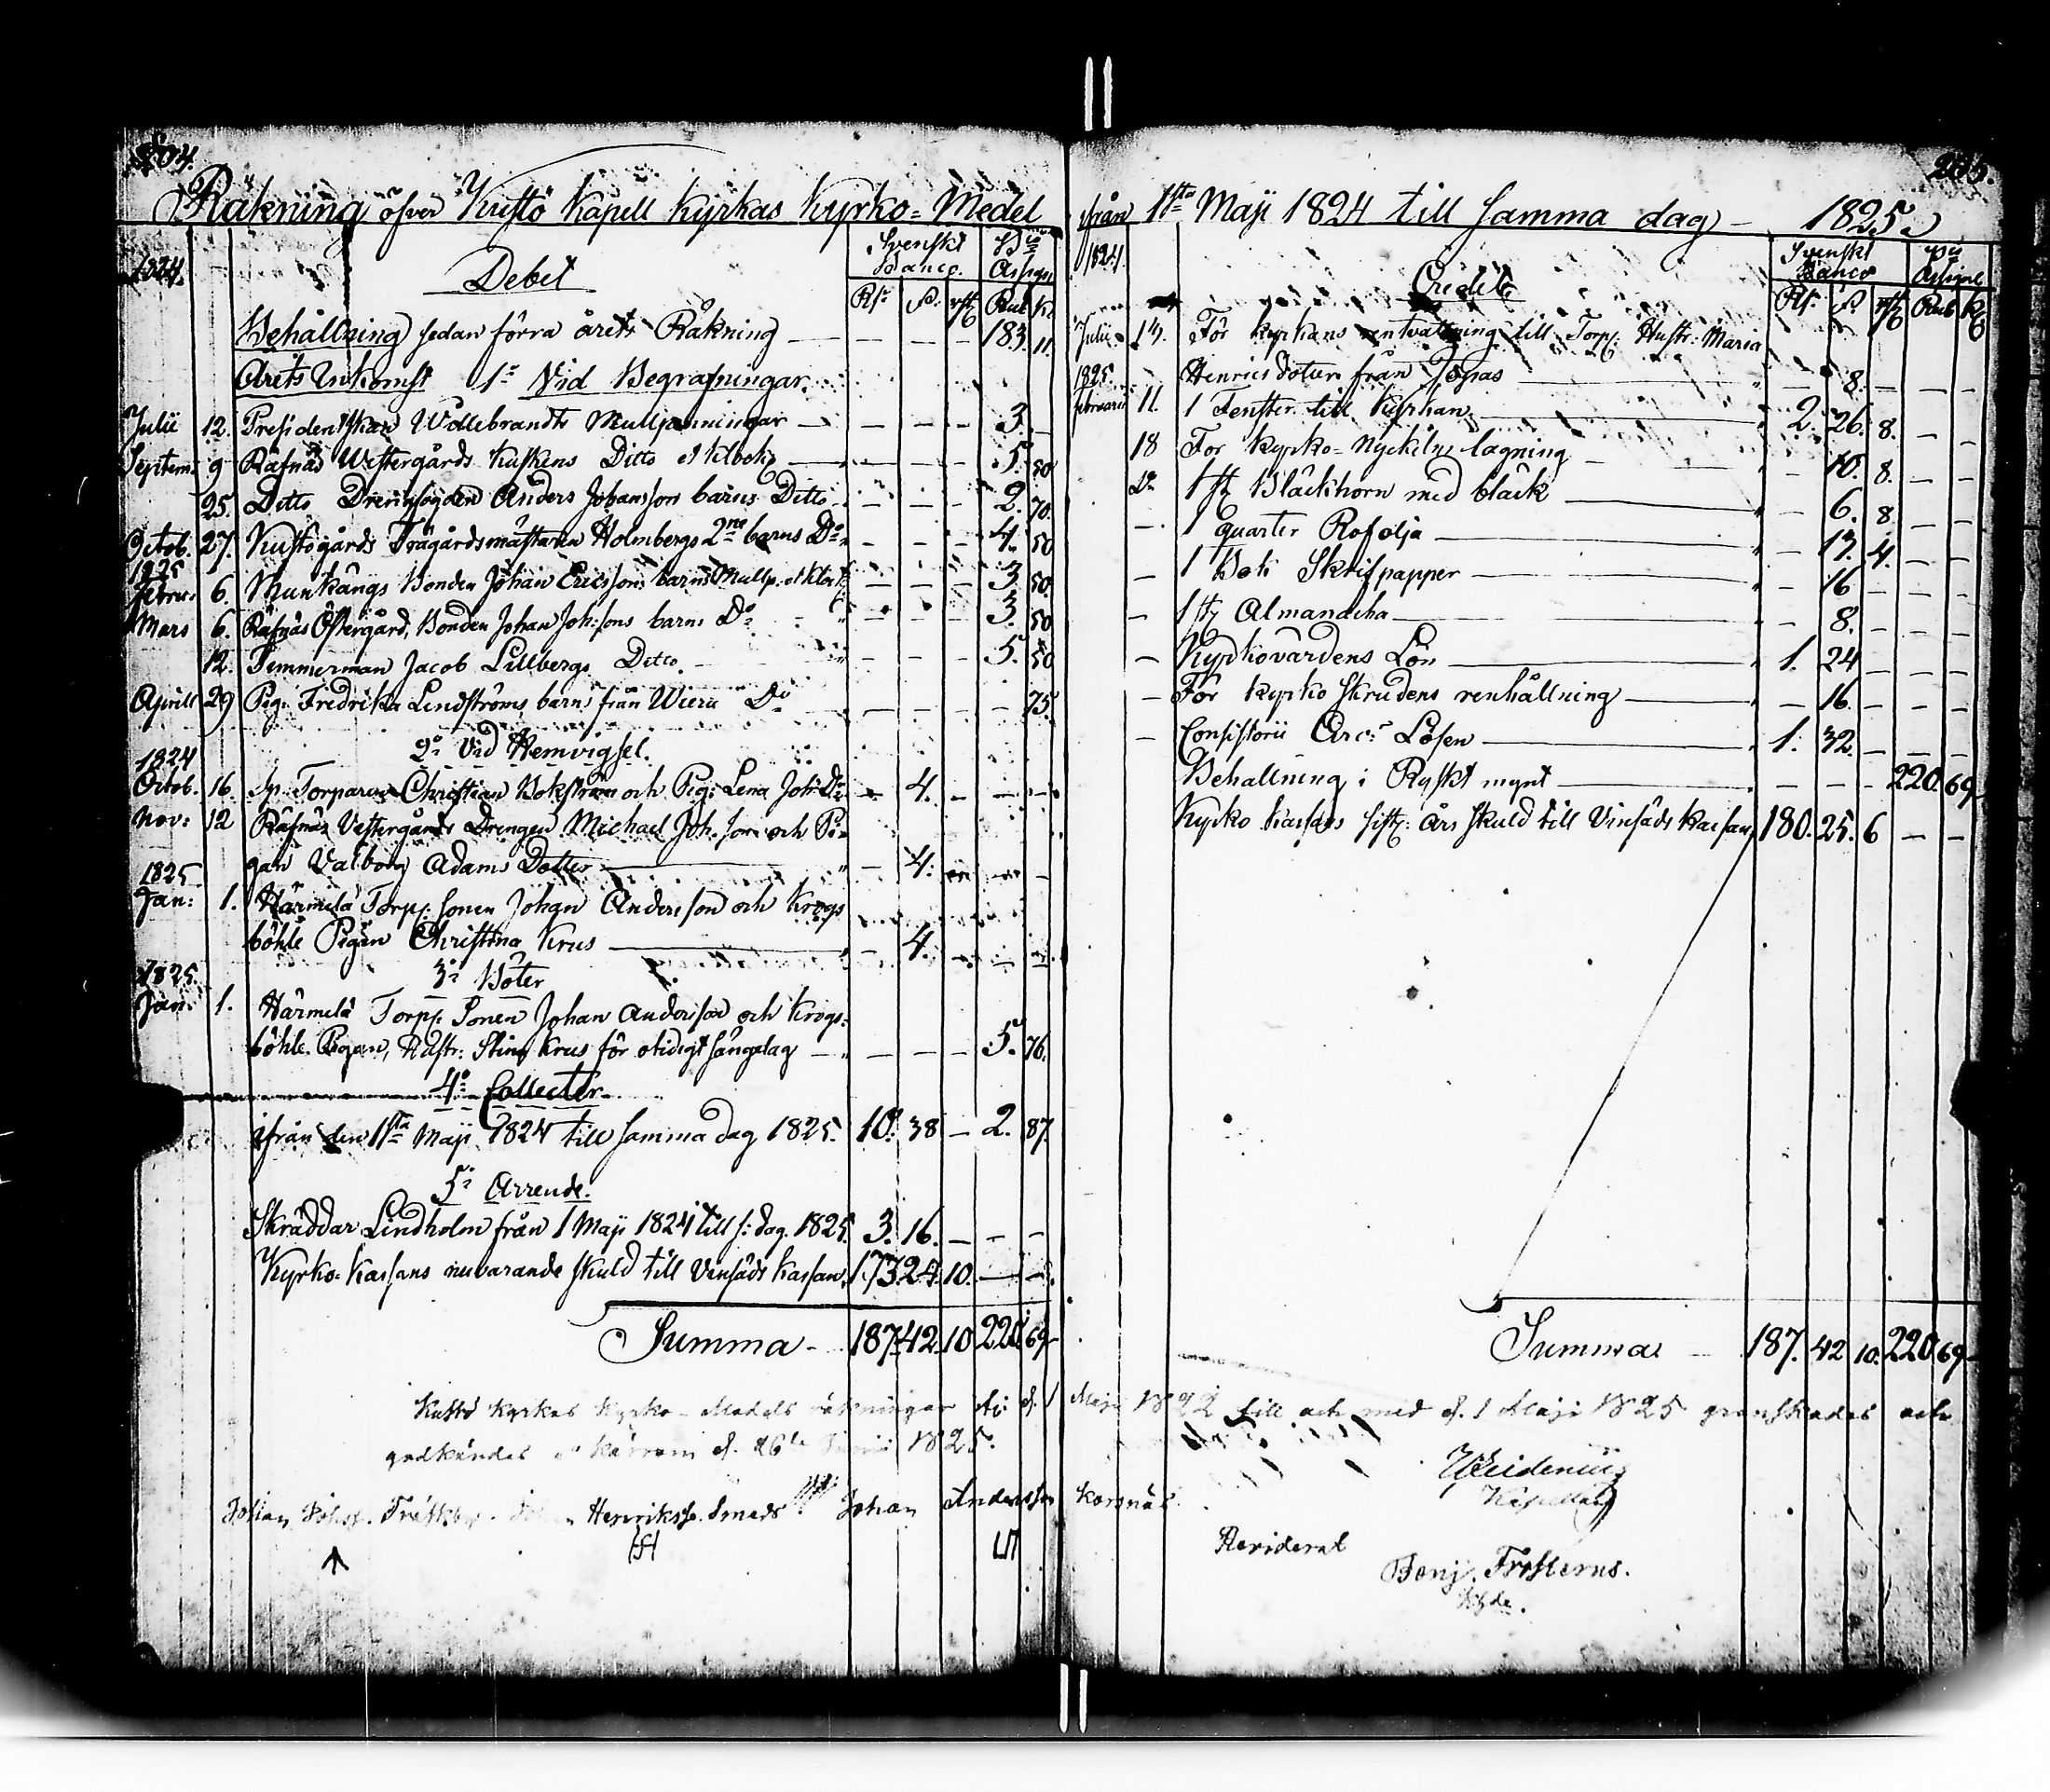 204.
Räkning öfver Kustö Kapell Kyrkas Kyrko-Medel
1824. Debet Svenskt Banco. Bco Assign.
Rs: S: rst Rub K.
Behållning sedan förra årets Räkning — — — — 183. 11.
Årets Inkomst 1o Vid Begrafningar.
Julii 12. Presidentskan Willebrandts Mullpenningar — — — — 3. —
Septem. 9 Räfnäs Westergårds Kuskens Ditto — — — 5. 50
25. Ditto Anders Johanssons barns Ditto — — — 2. 70.
Octob. 27. Kustögårds Trägårdsmästaren Holmbergs 2ne barns Do — — — 4. 50
1825
Febru. 6. Munkängs Bonden Johan Ericssons barns Mullp. et Klock — — — 3. 50
Mars 6. Räfnäs Östergård, Bonden Johan Joh:sons barns Do — — — 3. 50
12. Timmerman Jacob Lillbergs Ditto — — — 5. 50
Aprill 29 Pig. Fredrika Lindströms barns från Wiern Do — — — — 75.
2o Vid Hemvigsel.
1824
Octob. 16. Sp. Torparen Christian Bokström och Pig: Lena Joh:Dr — 4. — — —
Nov: 12 Räfnäs Vestergårds Drengen Michael Joh.son och Pi-
gan Valborg Adams Dotter — — 4. — — —
1825
Jan: 1. Härmälä Torp. Sonen Johan Andersson och Krogs
böhle Pigan Christina Krus — — 4. — — —
3o Böter
1825.
Jan. 1. Härmälä Torp. Sonen Johan Andersson och Krogs:
böhle Pigan, Stina Krus för otidigt sängelag — — — — 5. 76.
4o Collecter
ifrån den 1sta Maji 1824 till samma dag 1825. 10. 38 — 2. 87.
5o Arrende.
Skräddar Lindholm från 1 Maji 1824 till s: dag 1825. 3. 16. — — —
Kyrko-Kassans nuvarande skuld till Vinsåds kassan. 173. 24. 10. — —
Summa — 187. 42. 10 220 69
Kustö Kyrkas Kyrko-Medels räkningar d. 1
godkändes d. 26te 1825.
Johan Henrikss. Smeds Johan Andersson
205.
från 1sta Maji 1824 till samma dag — 1825.
1824. Credit Svenskt Banco Assign
Rs: S. rst Rub K
Julii 14. För kyrkans till Torp. Hustr: Maria
Henricsdotter från — — 8. — — —
1825
februarii 11. 1 Fenster till Kyrkan — 2. 26. 8. — —
18 För Kyrko-Nyckelns lagning — — 10. 8. — —
Do 1 st Bläckhorn med bläck — — 6. 8 — —
— 1 quarter Rofolja — — 17. 4. — —
— 1 Bok Skrifpapper — — 16 — — —
— 1 st Almanacka — — 8. — — —
— Kyrkovärdens Lön — 1. 24 — — —
— För kyrko skrudens renhållning — — 16. — — —
— Consistorii Lösen — 1. 32. — — —
Behållning i Ryskt mynt — — — — 220. 69
Kyrko Kassans sist: års skuld till Vinsåds Kassan 180. 25. 6 — —
Summa — 187. 42 10. 220 69
Maji 1822 till och med d. 1 Maji 1825 granskades och
Kapellan
Korsnäs
Reviderat
Benj. Frosterus.